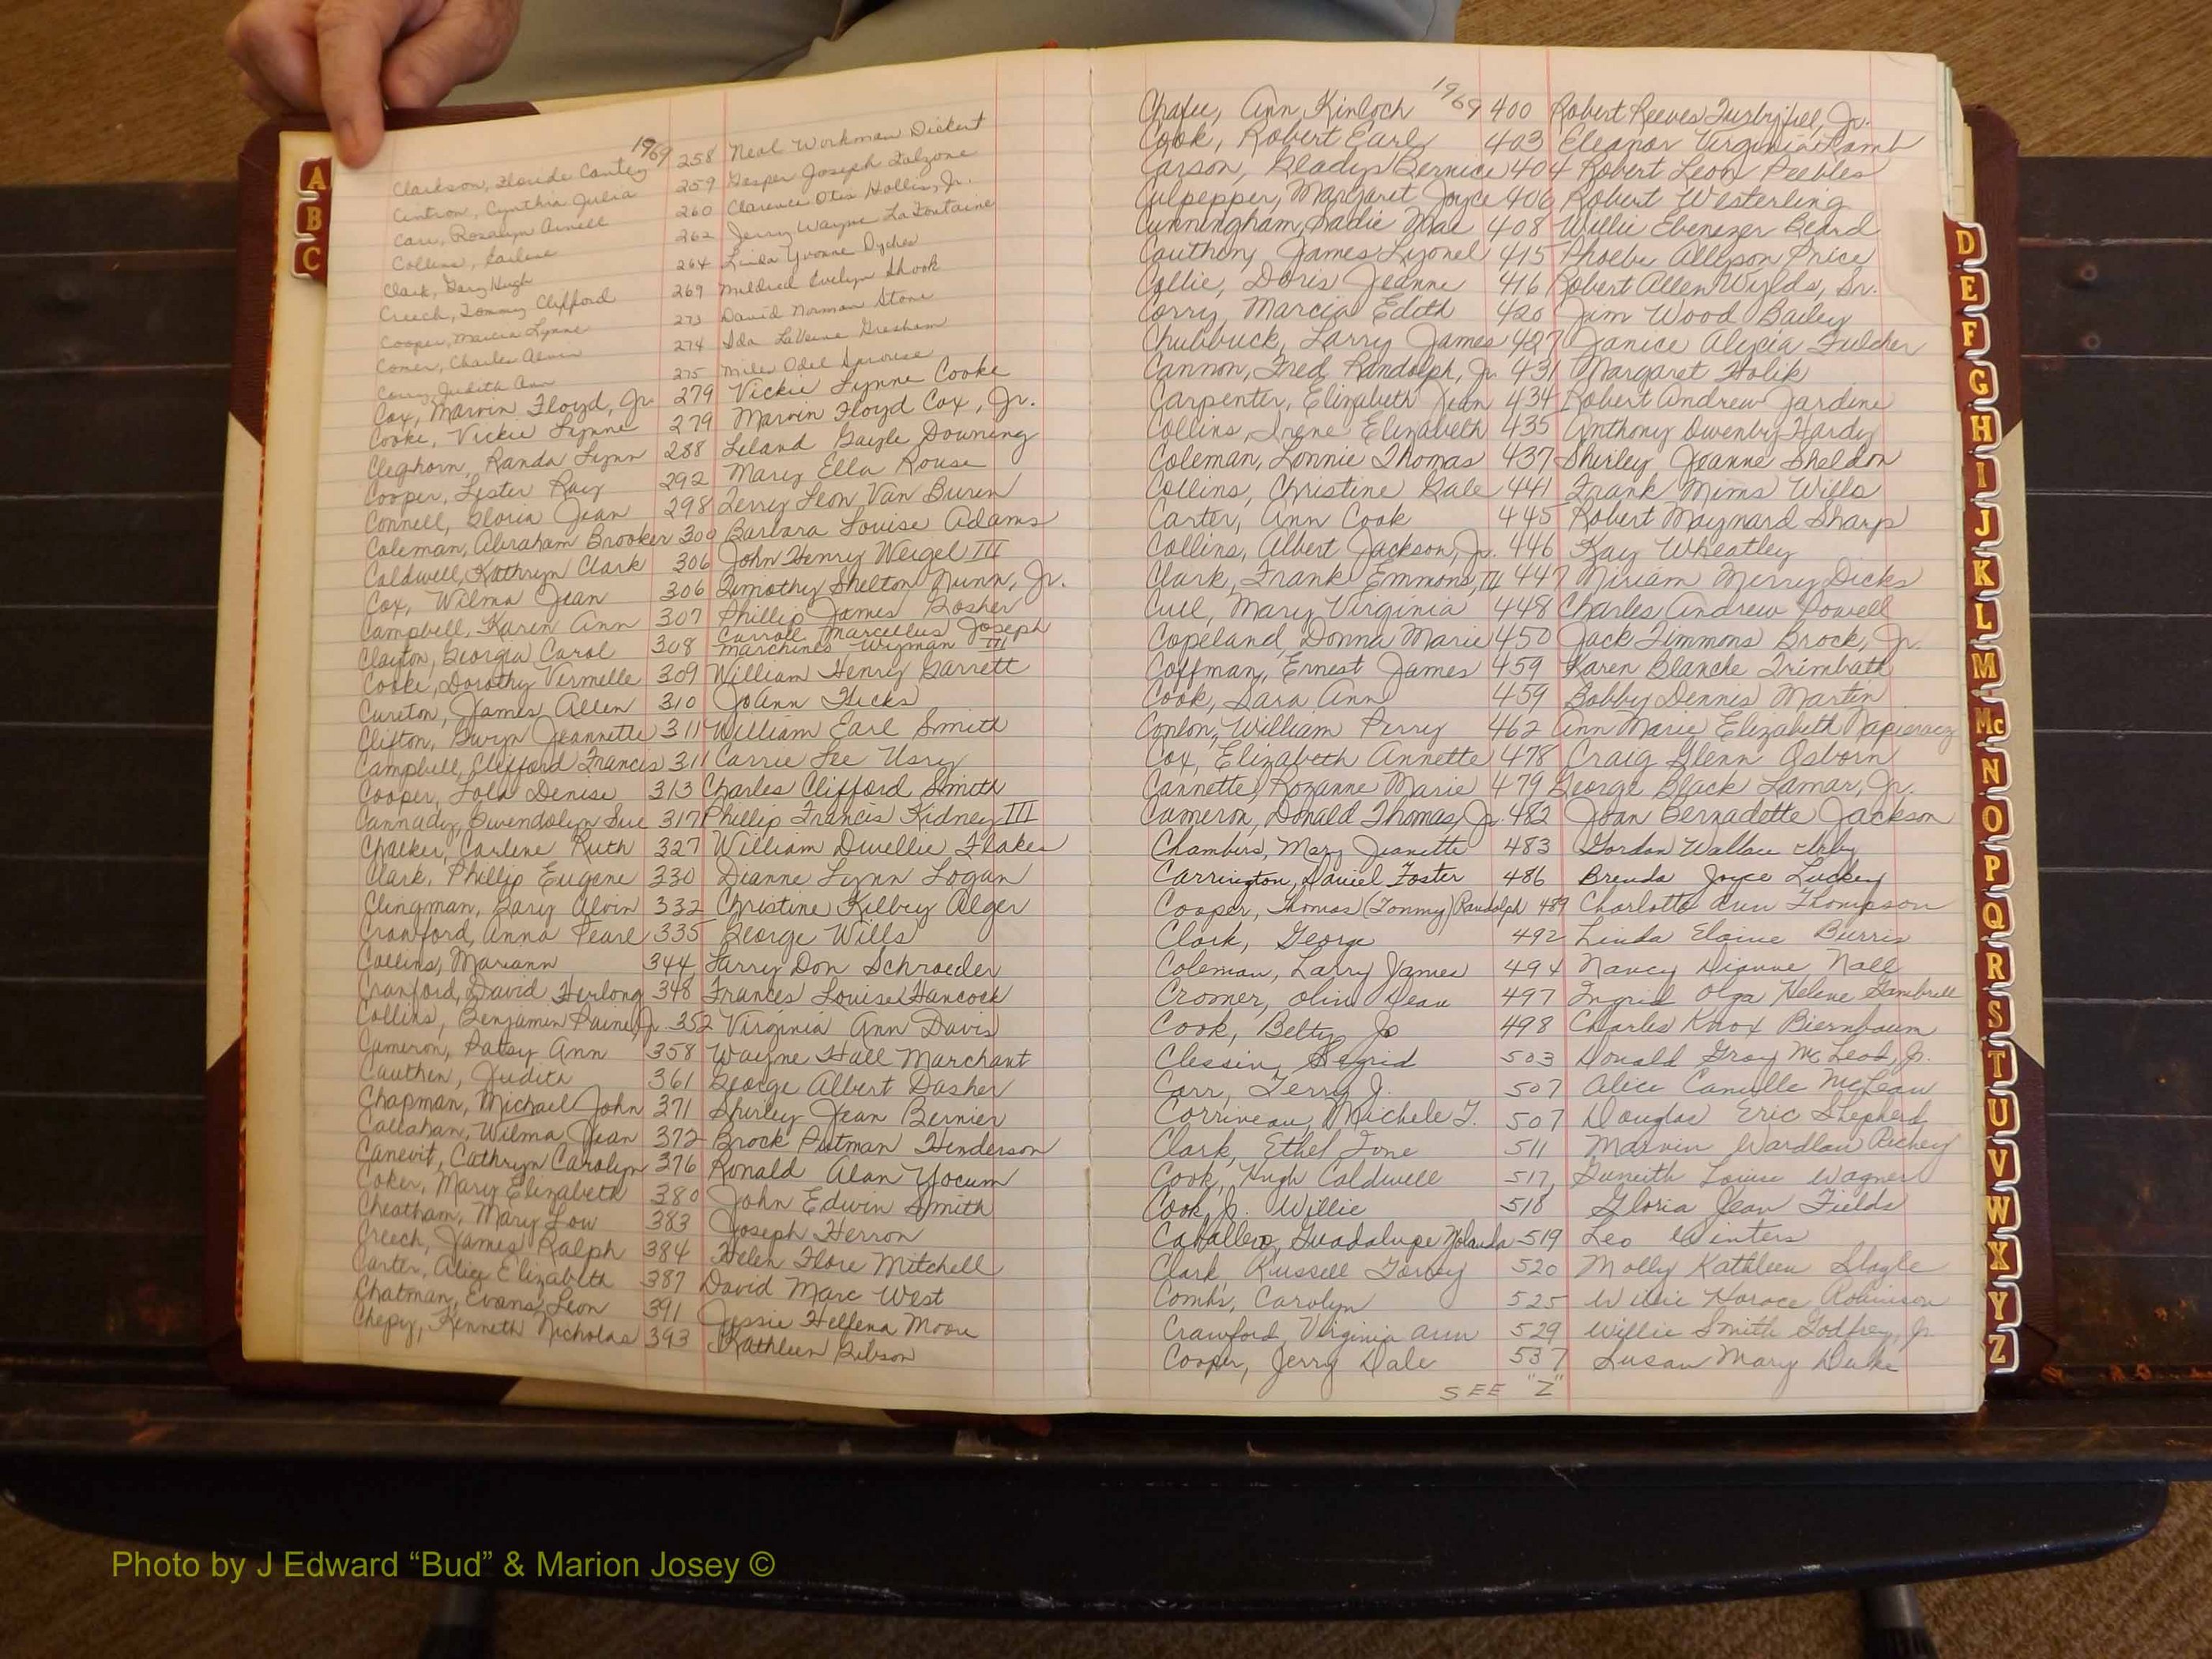 1969
Clarkson, Floride Cantey 258 Neal Workman Dickert
Cintron, Cynthia Julia 259 Gasper Joseph Falzone
Carr, Rosalyn Arnell 260 Clarence Otis Hollis, Jr.
Collins, Earlene 262 Jerry Wayne LaFontaine
Clark, Gary Hugh 264 Linda Yvonne Dyches
Creech, Tommy Clifford 269 Mildred Evelyn Shook
Cooper, Marcia Lynne 273 David Norman Stone
Comer, Charles Alvin 274 Ida LaVerne Gresham
Corry, Judith Ann 275 Miles Odel Sprouse
Cox, Marvin Floyd, Jr. 279 Vickie Lynne Cooke
Cooke, Vickie Lynne 279 Marvin Floyd Cox, Jr.
Cleghorn, Randa Lynn 288 Leland Gayle Downing
Cooper, Lester Ray 292 Mary Ella Rouse
Connell, Gloria Jean 298 Terry Leon Van Buren
Coleman, Abraham Brooker 300 Barbara Louise Adams
Caldwell, Kathryn Clark 306 John Henry Weigel III
Cox, Wilma Jean 306 Timothy Shelton Nunn, Jr.
Campbell, Karen Ann 307 Phillip James Bosher
Clayton, Georgia Carol 308 Carroll Marcellus Joseph
Marchines Wyman III
Cooke, Dorothy Vermelle 309 William Henry Garrett
Cureton, James Allen 310 JoAnn Hicks
Clifton, Gwyn Jeannette 311 William Earl Smith
Campbell, Clifford Francis 311 Carrie Lee Usry
Cooper, Lola Denise 313 Charles Clifford Smith
Cannady, Gwendolyn Sue 317 Phillip Francis Kidney III
Chalker, Carlene Ruth 327 William Dwellie Flakes
Clark, Phillip Eugene 330 Dianne Lynn Logan
Clingman, Gary Alvin 332 Christine Kilbry Alger
Crawford, Anna Pearl 335 George Wills
Collins, Mariann 344 Larry Don Schroeder
Cranford, David Herlong 348 Frances Louise Hancock
Collins, Benjamin Paine, Jr. 352 Virginia Ann Davis
Cameron, Patsy Ann 358 Wayne Hall Marchant
Cauthen, Judith 361 George Albert Dasher
Chapman, Michael John 371 Shirley Jean Bernier
Callahan, Wilma Jean 372 Brock Putman Henderson
Canevit, Cathryn Carolyn 376 Ronald Alan Yocum
Coker, Mary Elizabeth 380 John Edwin Smith
Cheatham, Mary Lou 383 Joseph Herron
Creech, James Ralph 384 Helen Flore Mitchell
Carter, Alice Elizabeth 387 David Marc West
Chatman, Evans Leon 391 Jessie Hellena Moore
Chepy, Kenneth Nicholas 393 Kathleen Gibson
1969
Chafee, Ann Kinloch 400 Robert Reeves Turbyfill, Jr.
Cook, Robert Earl 403 Eleanor Virginia Lamb
Carson, Gladys Bernice 404 Robert Leon Peebles
Culpepper, Margaret Joyce 406 Robert Westerling
Cunningham, Sadie Mae 408 Willie Ebenezer Beard
Cauthony James Lyonel 415 Phoebe Allyson Price
Collie, Doris Jeanne 416 Robert Allen Wylds, Sr.
Corry, Marcia Edith 420 Jim Wood Bailey
Chubbuck, Larry James 427 Janice Alycia Fulcher
Cannon, Fred Randolph, Jr. 431 Margaret Holik
Carpenter, Elizabeth Jean 434 Robert Andrew Jardine
Collins, Irene Elizabeth 435 Anthony Owenby Hardy
Coleman, Lonnie Thomas 437 Shirley Jeanne Sheldon
Collins, Christine Gale 441 Frank Mims Wills
Carter, Ann Cook 445 Robert Maynard Sharp
Collins, Albert Jackson, Jr. 446 Kay Wheatley
Clark, Frank Emmons, III 447 Miriam Merry Dicks
Cull, Mary Virginia 448 Charles Andrew Powell
Copeland, Donna Marie 450 Jack Timmons Brock, Jr.
Coffman, Ernest James 459 Karen Blanche Trimbath
Cook, Sara Ann 459 Bobby Dennis Martin
Conlon, William Perry 462 Ann Marie Elizabeth
Cox, Elizabeth Annette 478 Craig Glenn Osborn
Cannette, Rozanne Marie 479 George Black Lamar, Jr.
Cameron, Donald Thomas, Jr. 482 Joan Bernadette Jackson
Chambers, Mary Jeanette 483 Gordon Wallace Irby
Carrington, Daniel Foster 486 Brenda Joyce Luckey
Cooper, Thomas (Tommy) Randolph 489 Charlotte Ann Thompson
Clark, George 492 Linda Elaine Burris
Coleman, Larry James 494 Nancy Dianne Nall
Cromer, Olin Dean 497 Ingrid Olga Helene Gambrell
Cook, Betty Jo 498 Charles Knox Biernbaum
Clessin, Sigrid 503 Donald Gray McLeod, Jr.
Carr, Terry J. 507 Alice Camille McLean
Corriveau, Michele T. 507 Douglas Eric Shepherd
Clark, Ethel Ione 511 Marvin Wardlaw Richey
Cook, Hugh Caldwell 517 Louise Wagner
Cook, Jr. Willie 518 Gloria Jean Fields
Caballero, Guadalupe Yolanda 519 Leo Winters
Clark, Russell Torrey 520 Molly Kathleen Slagle
Combs, Carolyn 525 Willie Horace Robinson
Crawford, Virginia Ann 529 Willie Smith Godfrey, Jr
Cooper, Jerry Dale 537 Susan Mary Duke
SEE "Z"
A
B
C
D
E
F
G
H
I
J
K
L
M
Mc
N
O
P
Q
R
S
T
U
V
W
X
Y
Z
Photo by J Edward “Bud” & Marion Josey ©